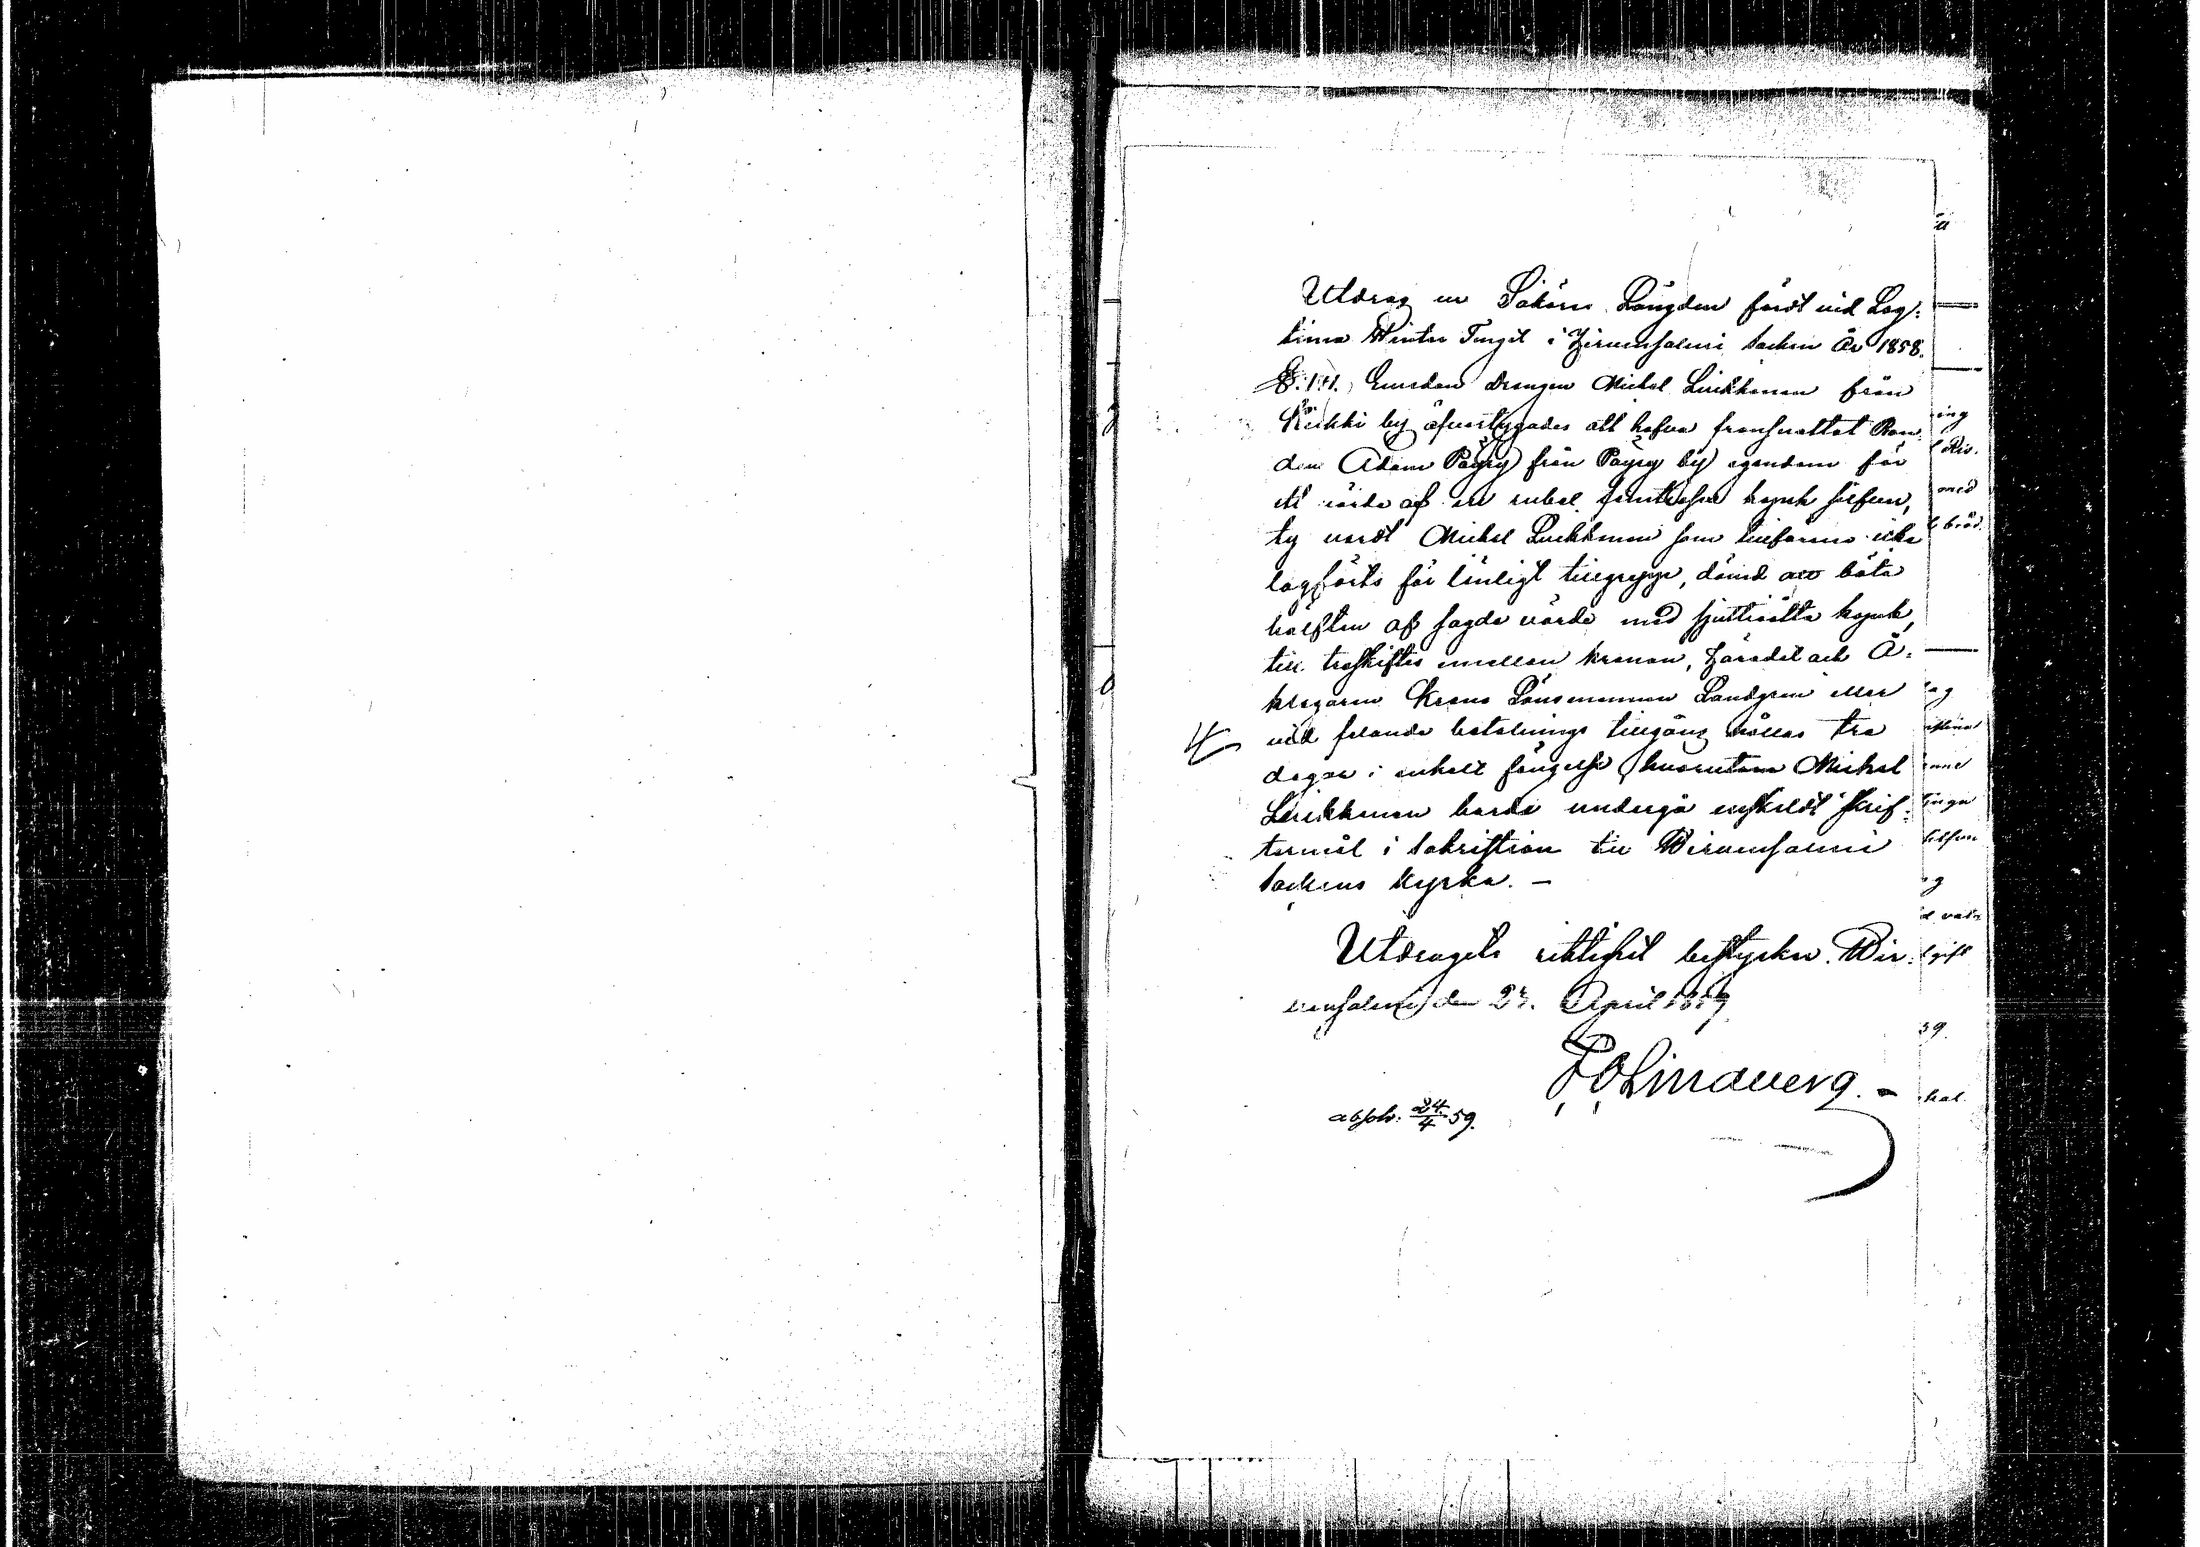 Utdrag ur Saköres Längden fördt vid Lag-
tima Winter Tinget i Wirmasalmi Socken År 1858.
§. 141. Emedan drengen Michel Leikkonen från
by öfvertygades att hafva frånsnattat Bon-
den Adam Pöyry från Pöyry by egendom för
ett värde af en rubel femtiosex kopek silfver,
ty vardt Michel Leikkonen som tillförene icke
lagförts för länligt tillgrepp, dömd att böta
hälften af sagde värde med sjuttioåtta kopek,
till treskiftes emellan kronan, häradet och Å-
klagaren Krono Länsmannen Landgren eller
vid felande betalnings tillgång hållas tre
dagar i enkelt fängelse, hvarutom Michel
Leikkonen borde undergå enskeldt skrif-
termål i Sakristian till Wirmasalmi
Sockens Kyrka. —
Utdragets riktighet bestyrker. Wir-
masalmi den 23. April 1859
Lindberg. –
absolv. 24/4 59.
ing
med
bröd.
ag
silfver
59.